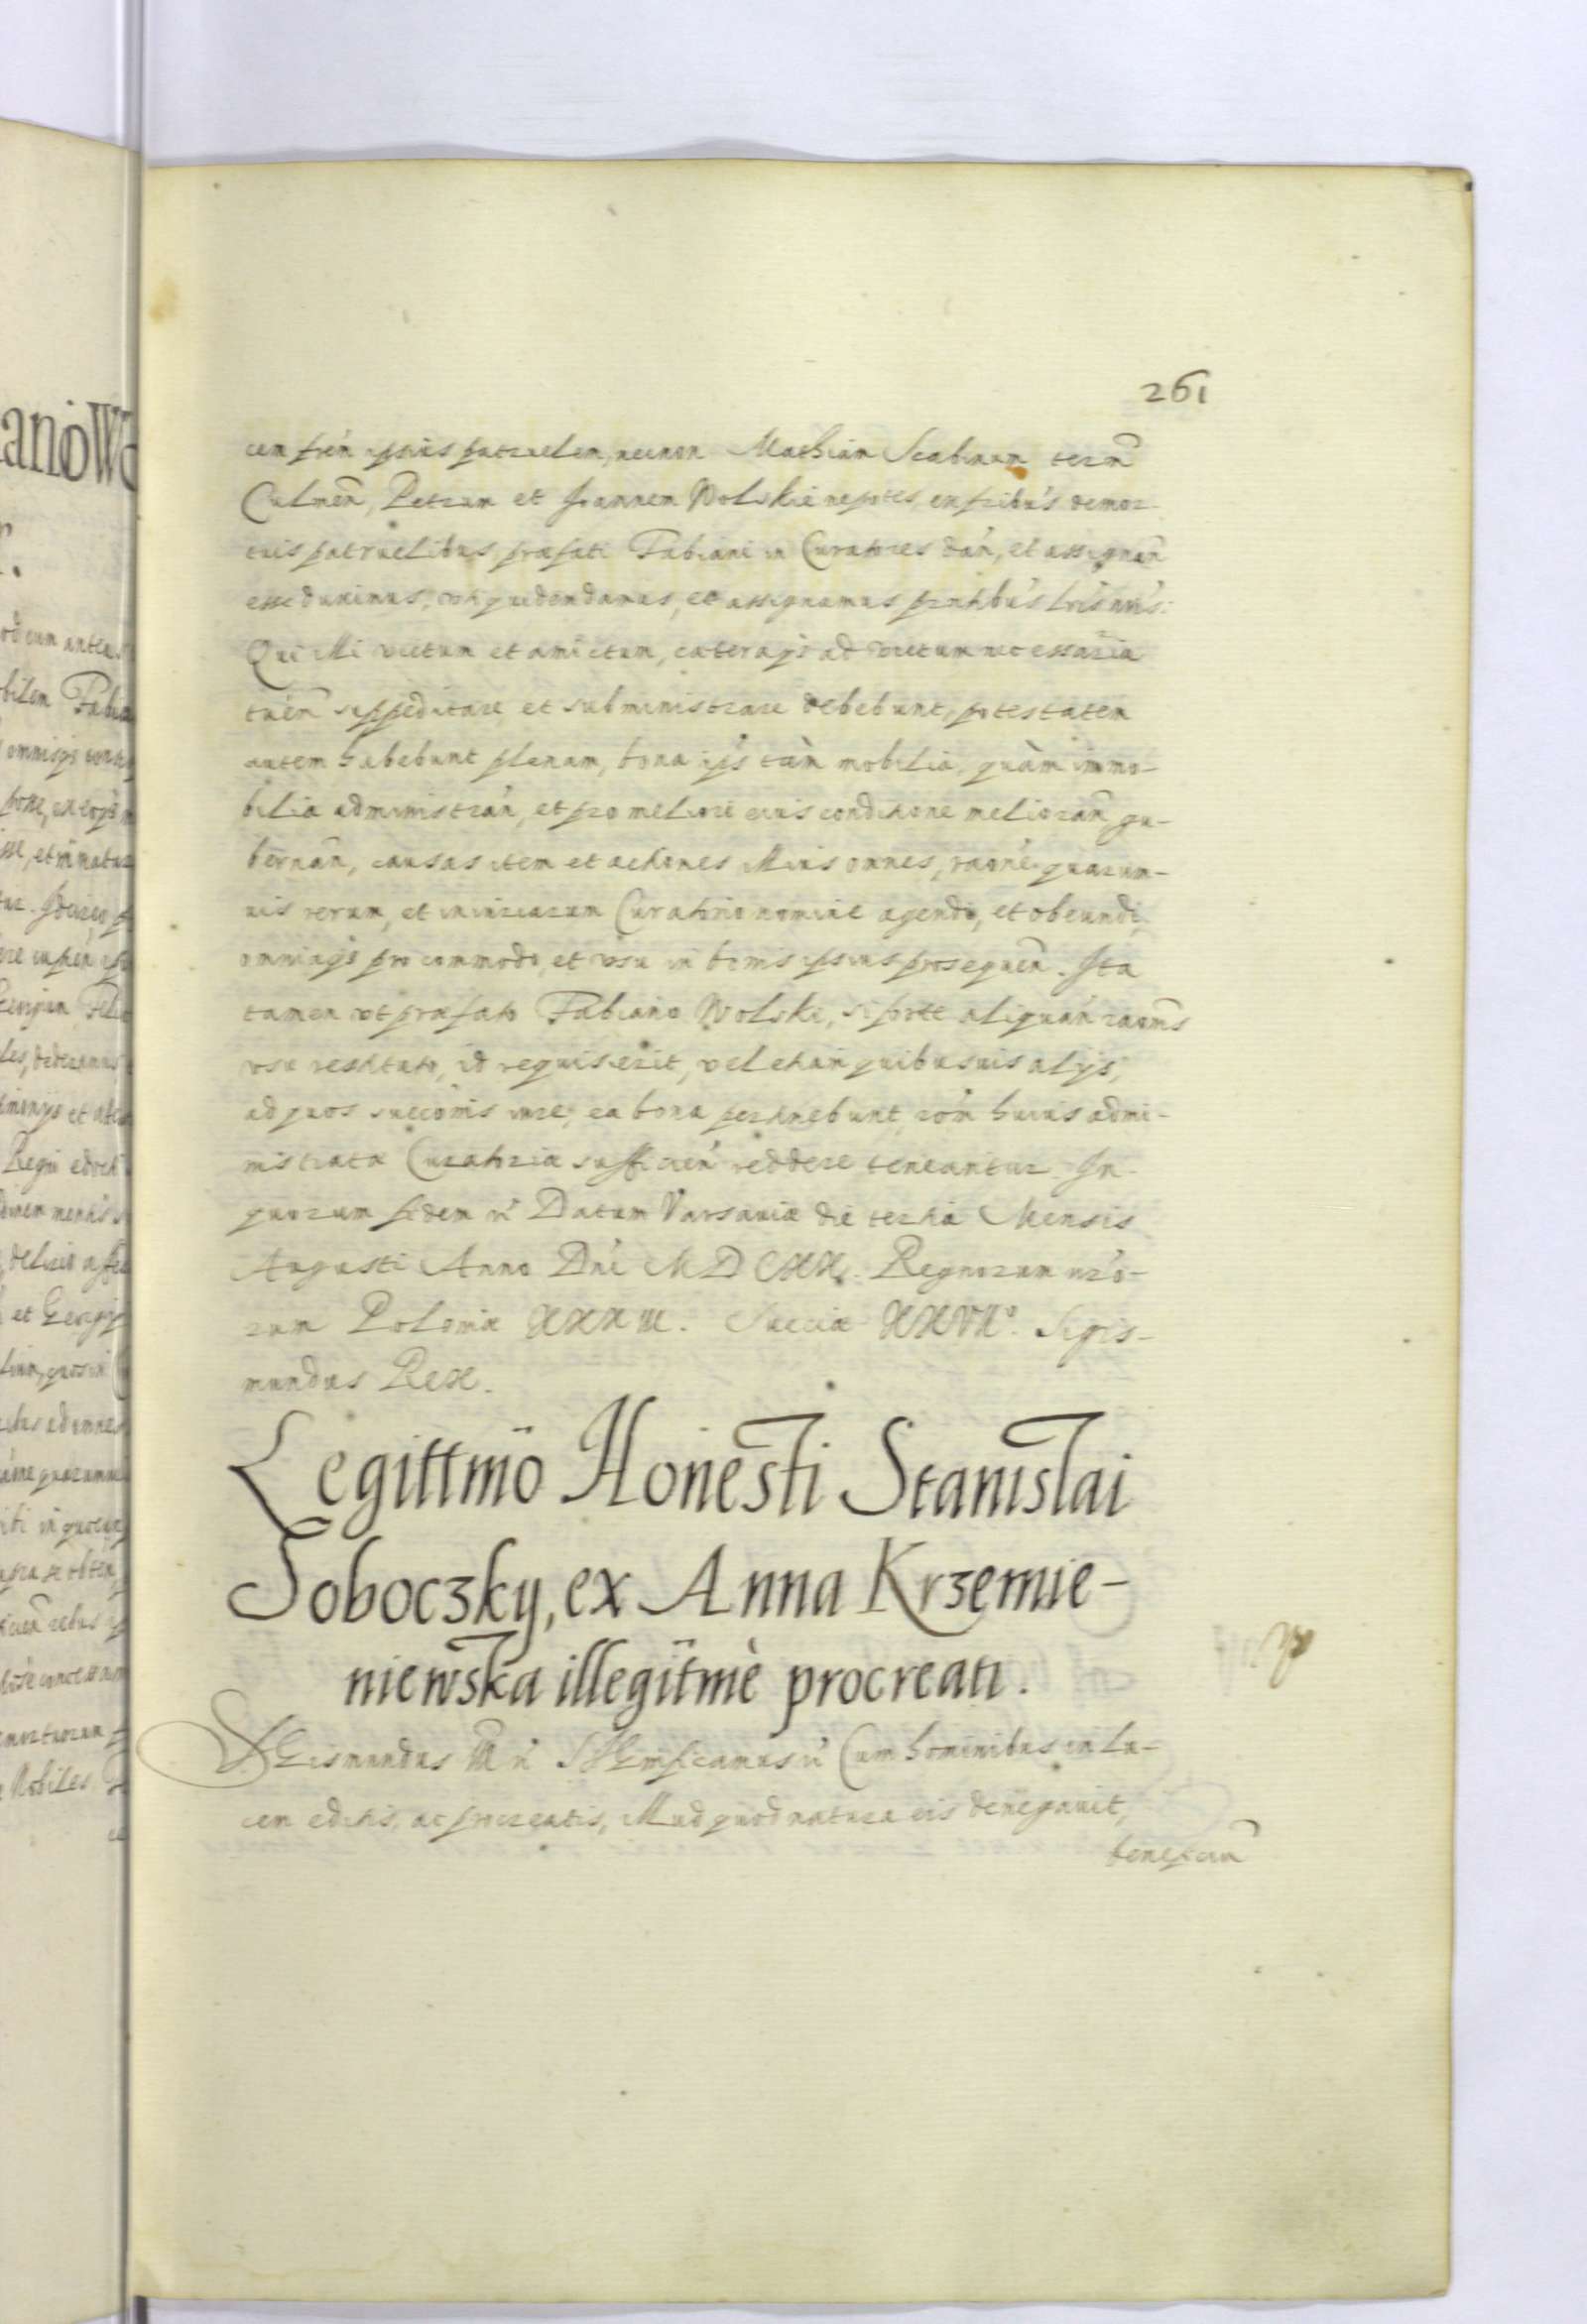 261
cem frem ipsius patruelem, necnon Mathiam Scabinum terrm̃
Culmeñ, Petrum et Joannem Wolskie nepotes, ex fribús demor-
tuis patruelibus præfati Fabiani in Curatores dań, et assignañ
esse duximus, vti quidem damus, et assignamus pr̃ntibús lrís nrís:
Qui illi victum et amictum, cæteraqз ad victum necessaria
tueñ suppeditare et subministrare debebunt, potestatem
autem habebunt plenam, bona ijs tàm mobilia, quàm immo-
bilia administrań, et pro meliore eius conditione meliorañ, gu-
bernañ, causas item et actiones illius omnes, raoné quarum-
uis rerum, et iniuriarum Curatorio nomine agendi, et obeundi,
omniaqз pro commodo, et vsu in bonis ipsius prosequeñ. Ita
tamen vt præfato Fabiano Wolski, si forte aliquań raonis
vsu restituto, id requisierit, vel etiam quibusuis alijs,
ad quos succonis iure, ea bona pertinebunt, roń huius admi-
nistratæ Curatoriæ sufficień reddere teneantur. In-
quorum fidem ń Datum Varsauiæ die tertia Mensis
Augusti Anno Dní MDCXX. Regnorum nró-
rum Poloniæ XXXIII. Sueciæ XXVII°. Sigis-
mundus Rex.
Legittmõ Honesti Stanislai
Soboczky, ex Anna Krzemie-
niewska illegitmè procreati.
SIGismundus III ń SIGnificamus ń Cum hominibus in lu-
cem editis, ac procreatis, illud quod natura eis denegauit,
beneficiũ
anoWo
r.
od cum antea
bilem Fabia
Regni
et Georgi
Nobiles